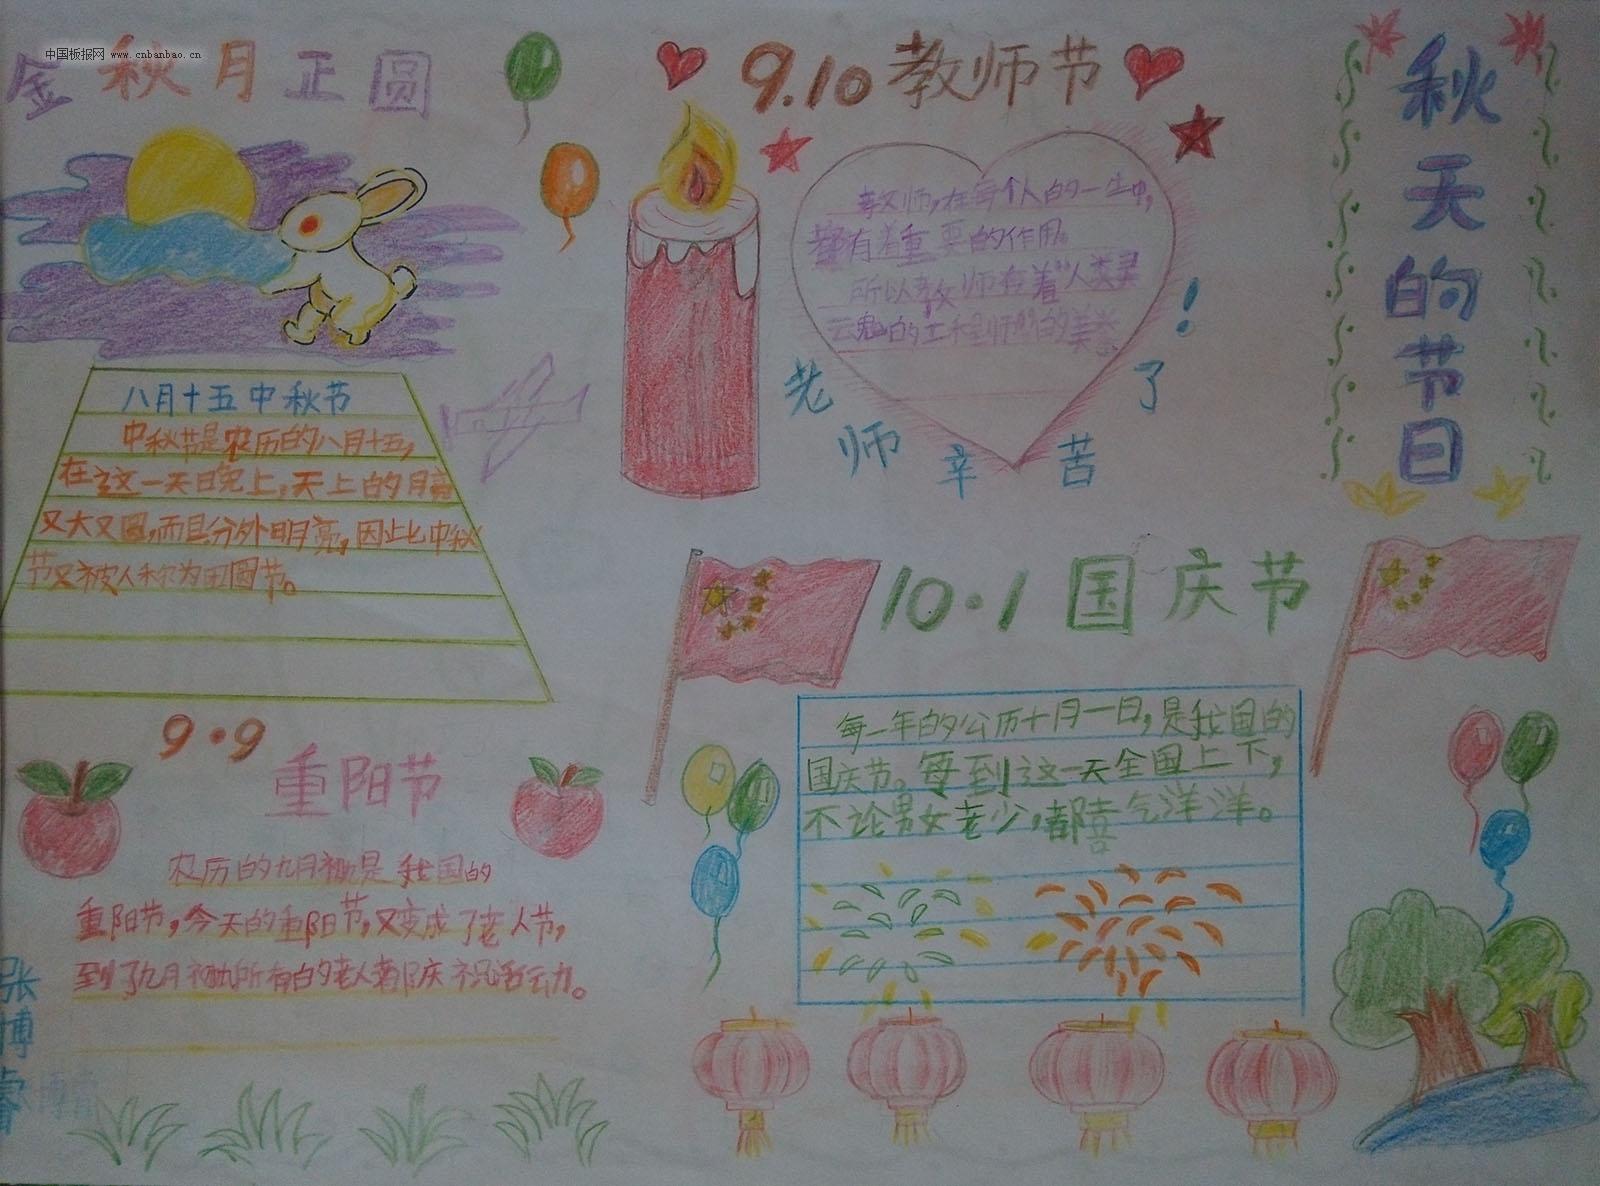 中国板报网 www.cnbanbao.cn
金秋月正圆
八月十五中秋节
中秋节是农历的八月十五,
在这一天晚上,天上的月亮
又大又圆,而且分外明亮,因此中秋
节又被人称为团圆节。
9·9
重阳节
农历的九月初九是我国的
重阳节,今天的重阳节,又变成了老人节,
到了九月初九所有的老人都庆祝活动。
张博睿
9.10教师节
教师,在每个人的一生中,
都有着重要的作用。
所以教师有着“人类灵
魂的工程师”的美誉
老师辛苦了!
10·1国庆节
每一年的公历十月一日,是我国的
国庆节。每到这一天全国上下,
不论男女老少,都喜气洋洋。
秋天的节日